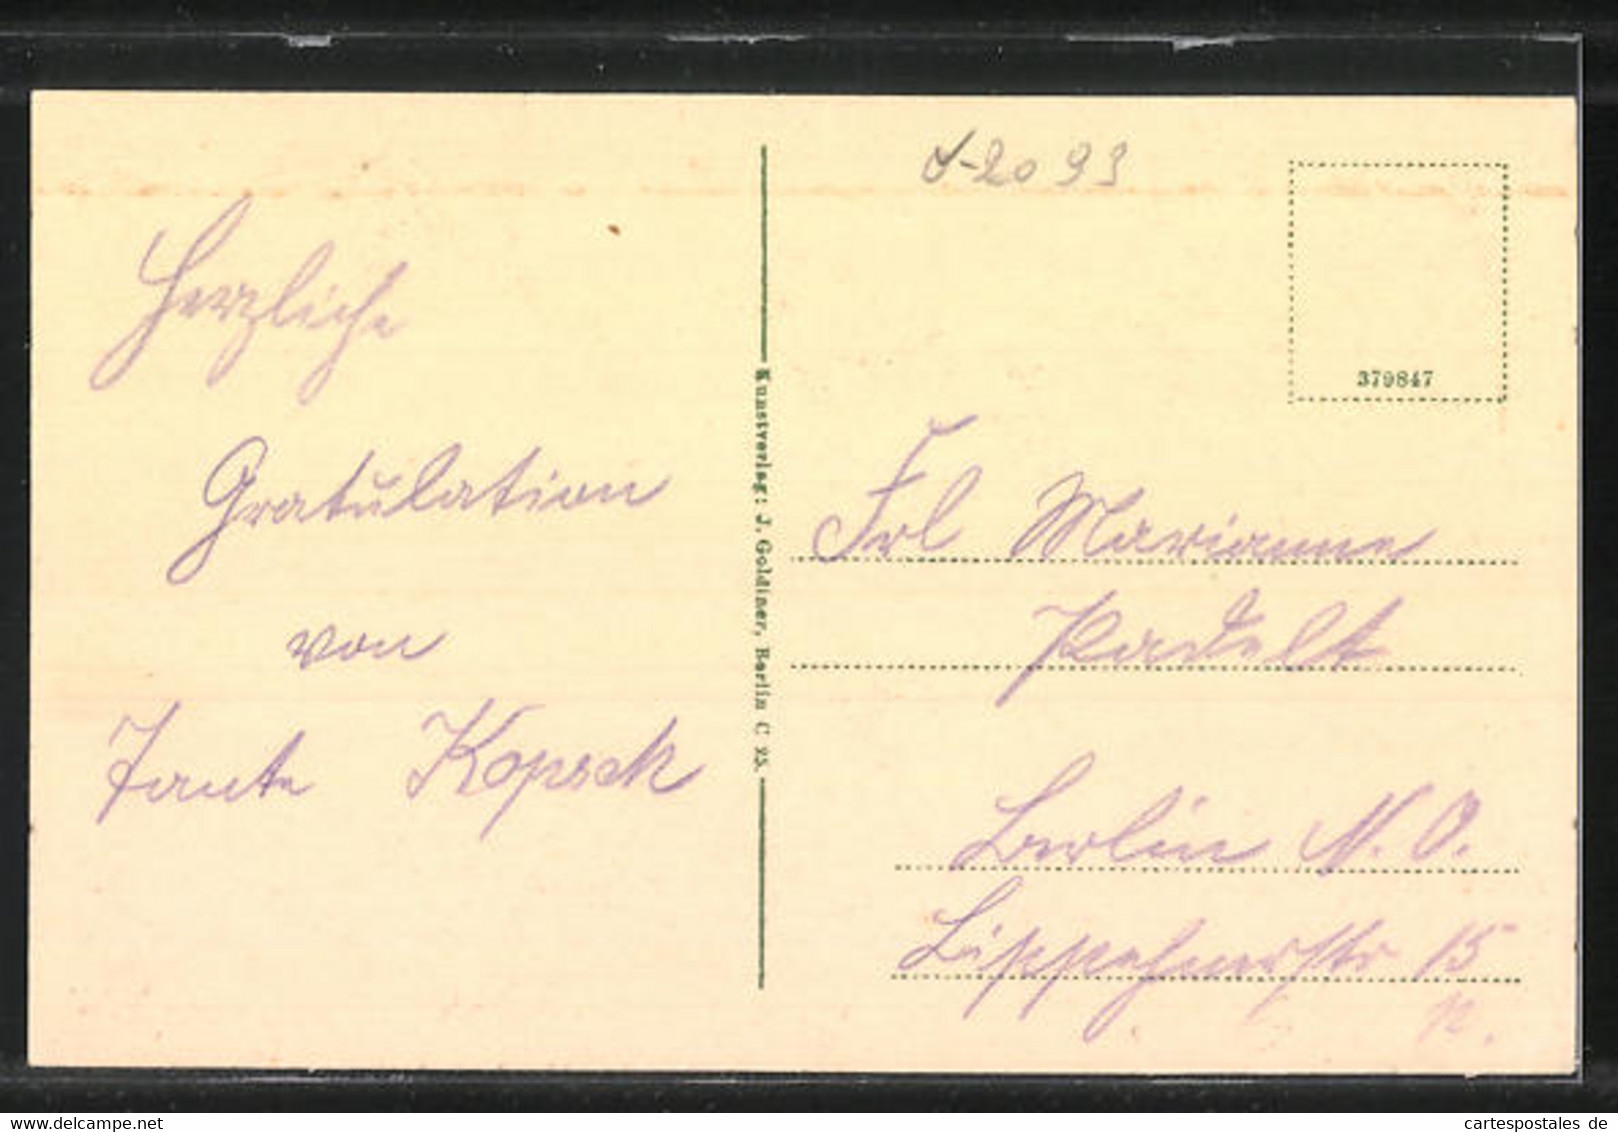 Herzliche
Gratulation
von
Tante Kopsch
Kunstverlag: J. Goldiner, Berlin C 25.
2093
379847
Frl Marianne
Radelt
Berlin N. O.
Lippehnerstr 15
cartespostales de